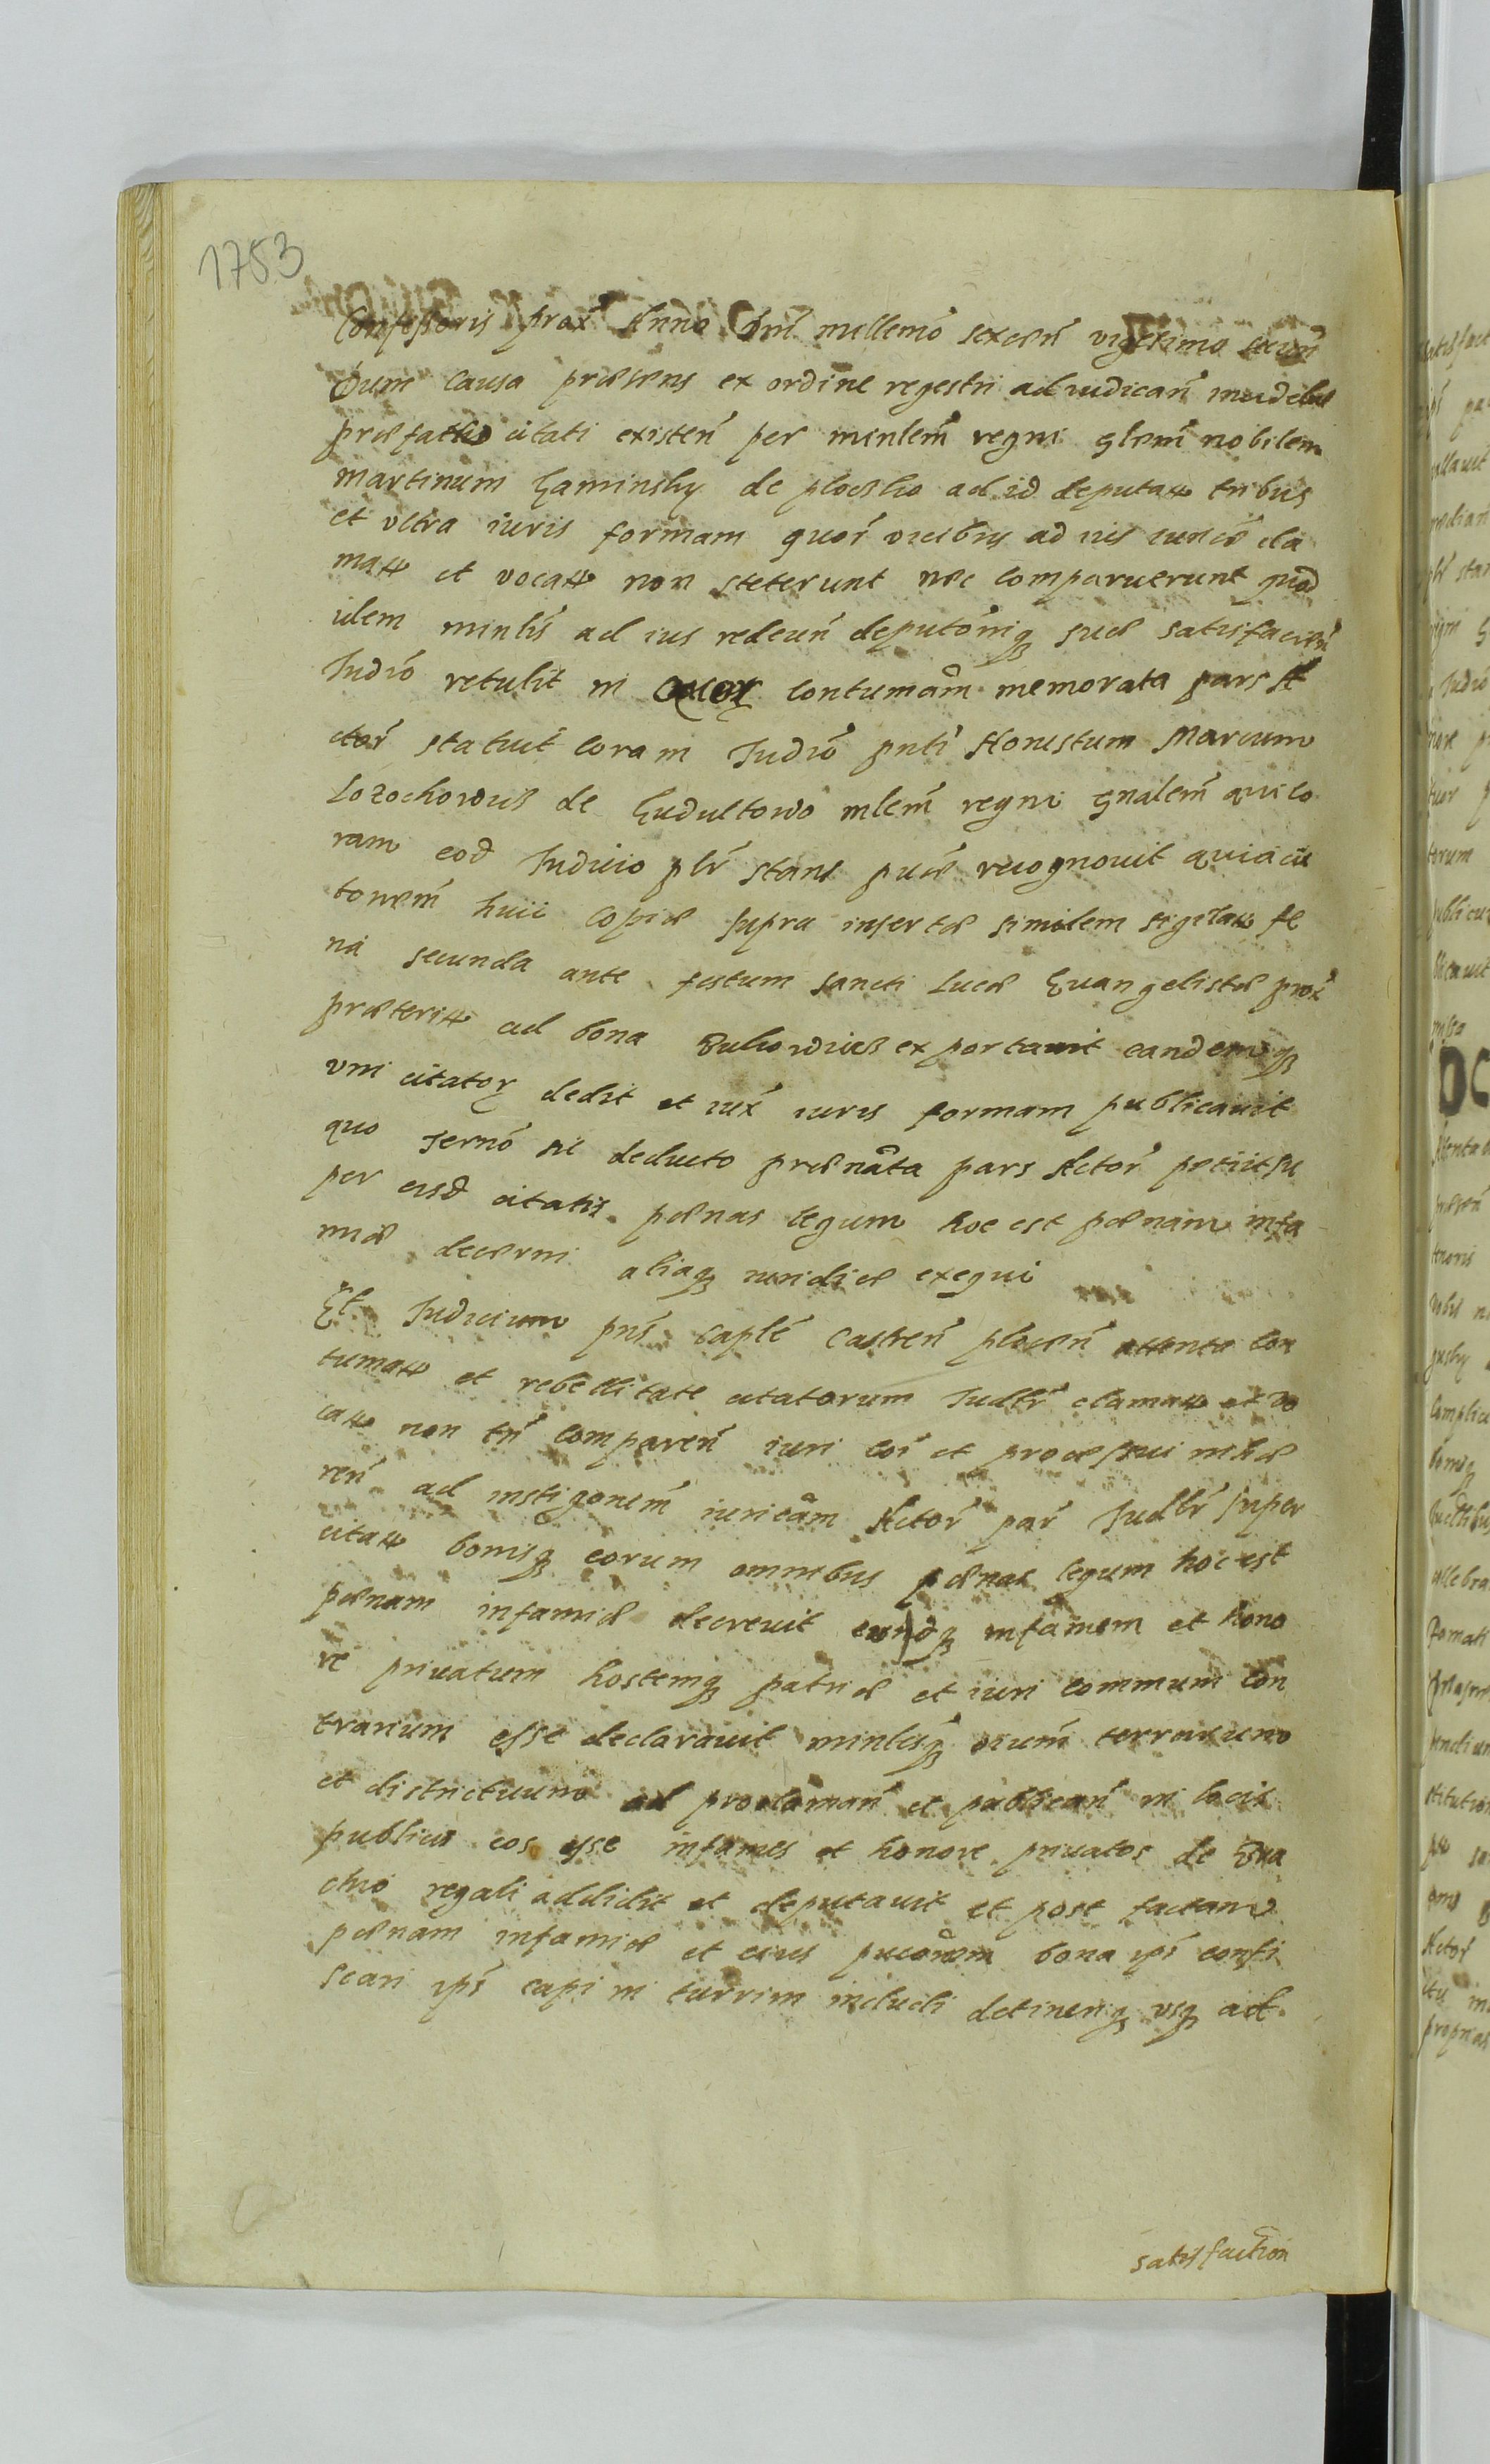 1753
Confessoris prox Anno Dni millemo sexcen vigesimo secun
Dum causa præsens ex ordine regestri ad iudican incidebat
præfattis citati existen per minlem regni glem nobilem
Martinum Kaminsky de plocsko ad id deputatt tribus
et vltra iuris formam quor vicibus ad ius iurice cla
matt et vocatt non steterunt nec comparuerunt quod
idem minlis ad ius redeun deputoniq suæ satisfacien
Iudio retulit in contumam memorata pars A
ctor statuit coram Iudio pnti Honestum Marcum
de mlem regni gnalem qui co
ram eod Iudicio plr stans puce recognouit quia ci
tonem huic copiæ supra insertæ similem sigilatt fe
ria secunda ante festum Sancti Lucæ Euangelistæ prox
præteritt ad bona exportauit eandemq
vni citatorum dedit et iux iuris formam publicauit
quo termo sic deducto prænata pars Actor petiit su
per eisd citatis pænas legum hoc est pænam infa
miæ decerni aliaq iuridice exequi
Et Iudicium pns Caplé Castren plocen attenta con
tumatt et rebellitate citatorum Iudlr clamatt et vo
catt non tn comparen iuri coi et processui
ren ad instigonem iuricam Actor par Iudlr super
citatt bonisq eorum omnibus pænas legum hoc est
pænam infamiæ decreuit eundq infamem et hono
re priuatum hostemq patriæ et iuri communi con
trarium esse declarauit minlesq oium terrarum
et districtuum ad proclaman et publican in locis
publicis eos esse infames et honore priuatos de Bra
chio regali addidit et deputauit et post factam
pænam infamiæ et eius pucaonem bona ips confi
scari ips capi in turrim includi detineriq vsq ad
satisfaction